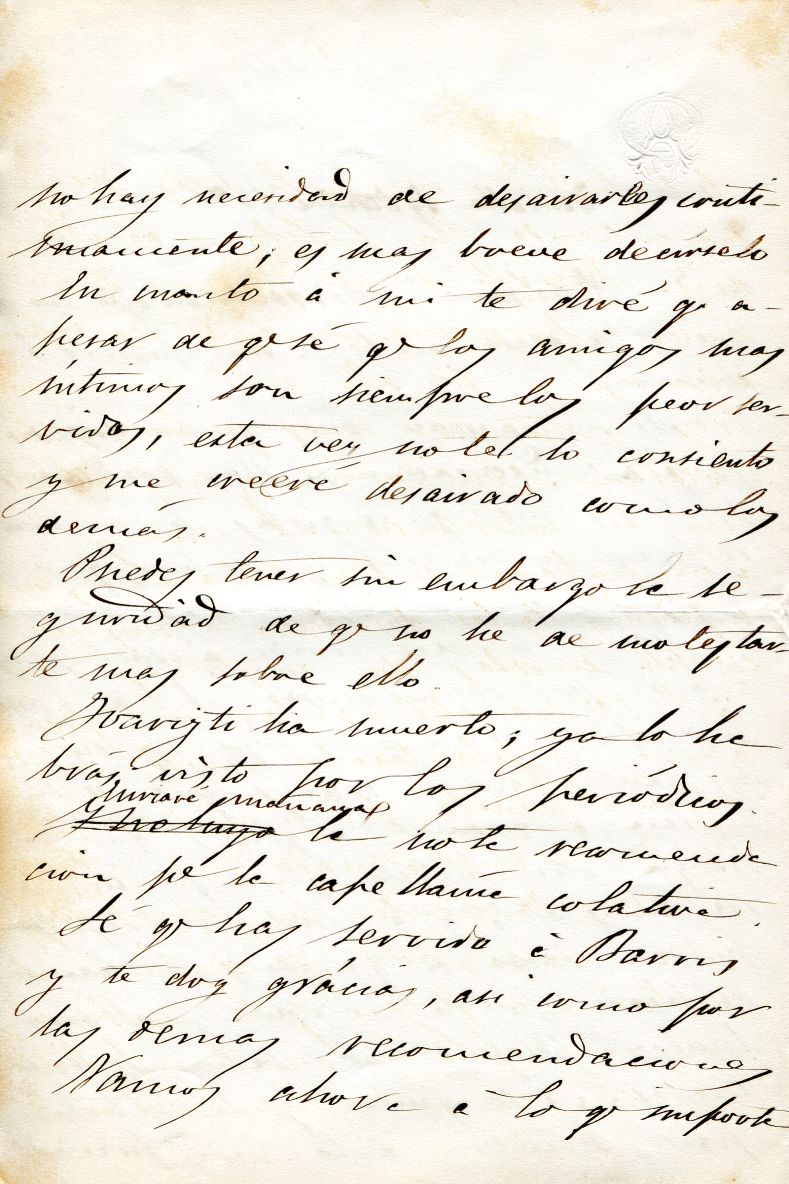 no hay necesidad de desairarles conti-
nuamente; es mas breve decirselo
En cuanto á mi te diré qe a-
pesar de qe sé qe los amigos mas
íntimos son siempre los peor ser-
vidos, esta vez no te lo consiento
y me creeré desairado como los
demás.
Puedes tener sin embargo la se-
guridad de qe no he de molestar-
te mas sobre ello
ha muerto; ya lo ha
brás visto por los periódicos.
Enviaré mañana
Incluyo la nota recomenda
cion pa la capellanía colativa.
Sé qe has servido á Barris
y te doy grácias, asi como por
las demas recomendaciones
Vamos ahora á lo qe importa